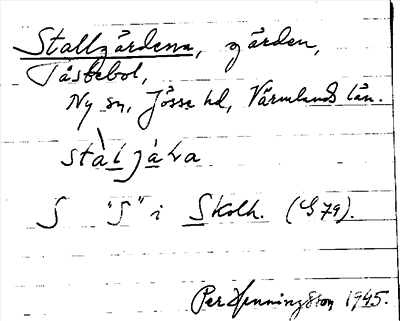 Stallgärdena, gärden,
Tåstebol,
Ny sn, Jösse hd, Värmlands län.
S "S" i Skolk. (S 79).
Per Henningsson 1945.